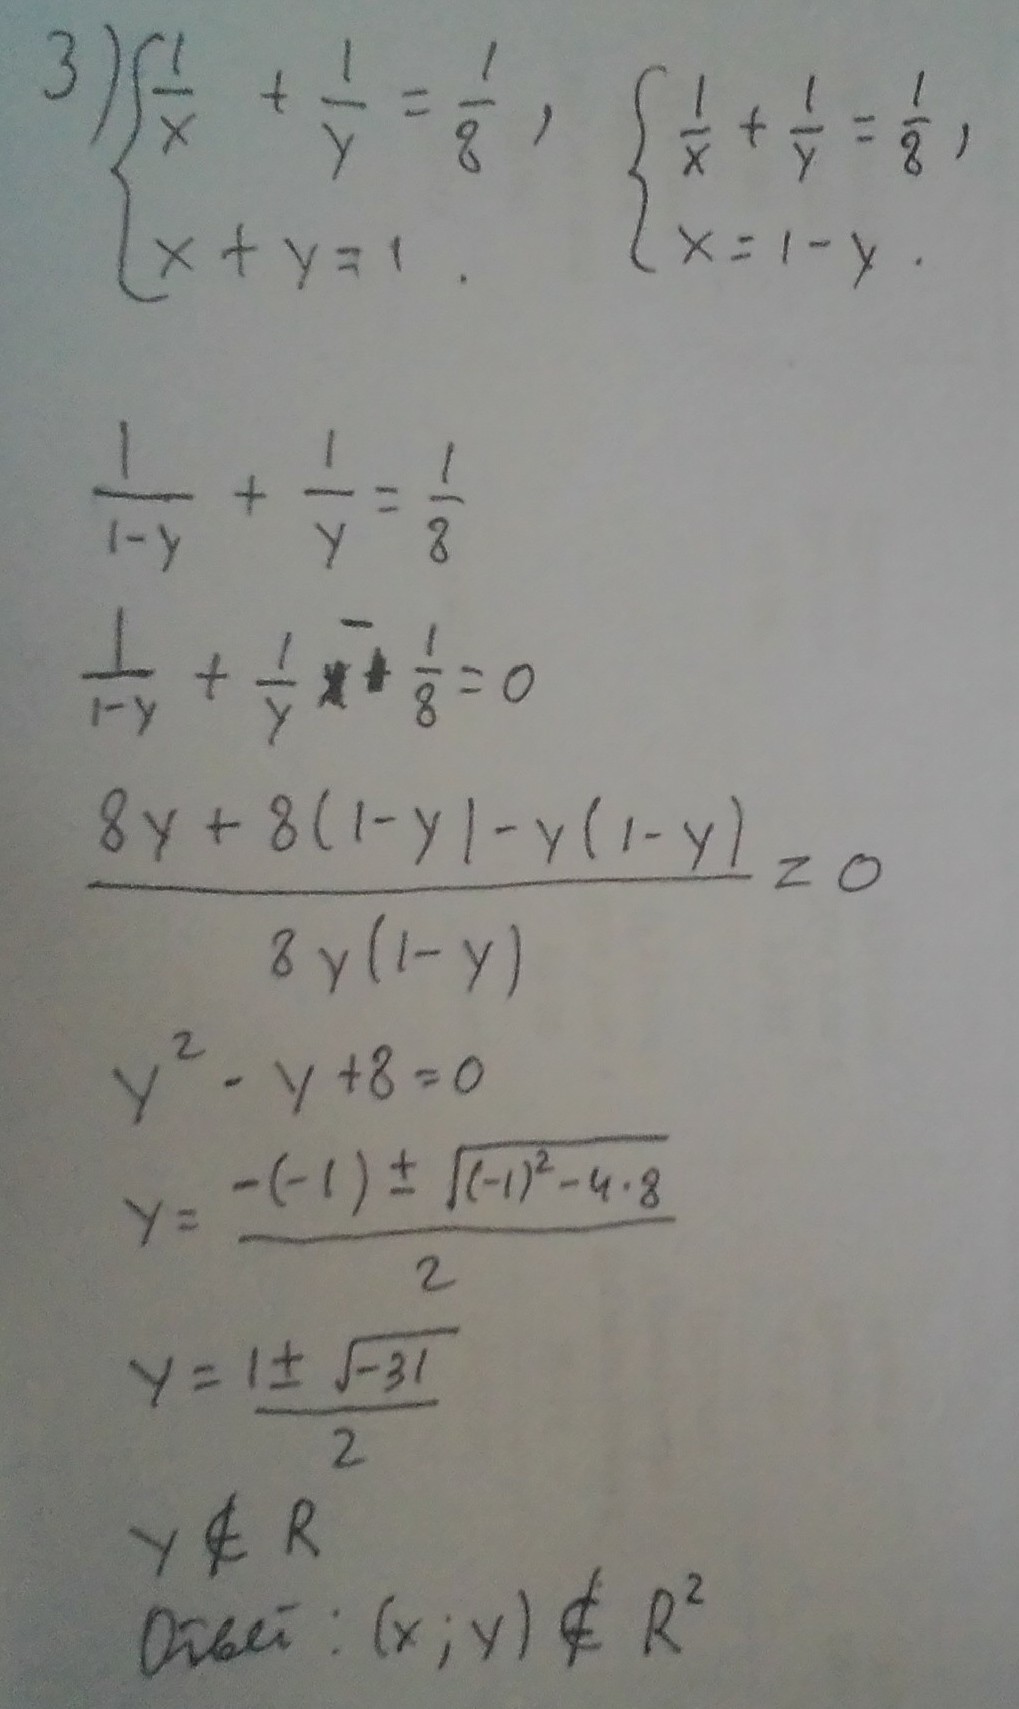 3) { 1/x + 1/y = 1/8 , { 1/x + 1/y = 1/8 ,
x + y = 1 . x = 1 - y .
1/(1-y) + 1/y = 1/8
1/(1-y) + 1/y - 1/8 = 0
(8y + 8(1-y) - y(1-y)) / (8y(1-y)) = 0
y² - y + 8 = 0
y = (-(-1) ± √((-1)² - 4·8)) / 2
y = (1 ± √-31) / 2
y ∉ R
Ответ : (x ; y) ∉ R²